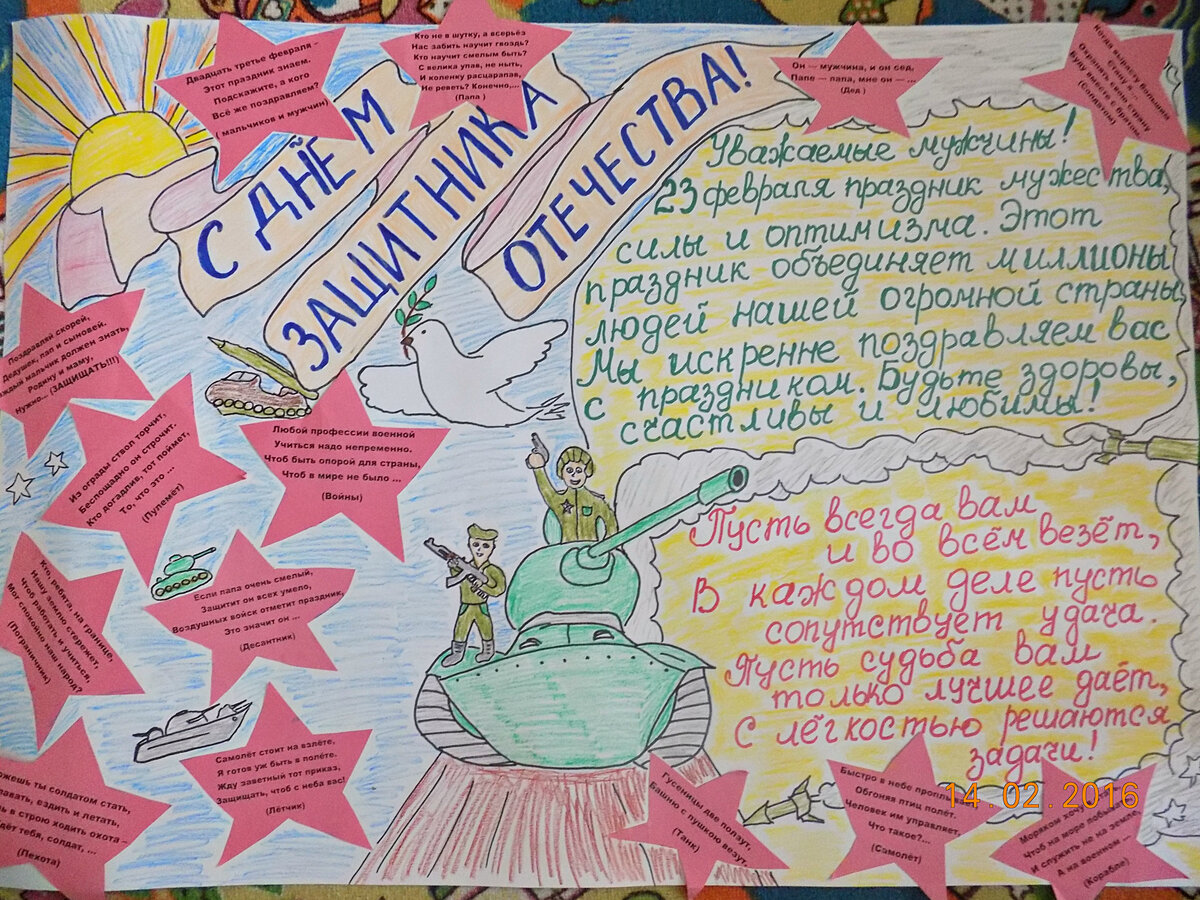 Двадцать третье февраля –
Этот праздник знаем.
Подскажите, а кого
Всё же поздравляем?
( мальчиков и мужчин)
Кто не в шутку, а всерьёз
Нас забить научит гвоздь?
Кто научит смелым быть?
С велика упав, не ныть,
И коленку расцарапав,
Не реветь? Конечно,...
(Папа )
Он — мужчина, и он сед,
Папе — папа, мне он — ...
(Дед )
Когда вырасту большим
Стану я ...
Охранять свою страну
Буду вместе с братом
(Солдатом)
С ДНЁМ
ЗАЩИТНИКА
ОТЕЧЕСТВА!
Уважаемые мужчины!
23 февраля праздник мужества,
силы и оптимизма. Этот
праздник объединяет миллионы
людей нашей огромной страны
Мы искренне поздравляем вас
с праздником. Будьте здоровы,
счастливы и любимы!
Поздравляй скорей,
Дедушек, пап и сыновей.
мальчик должен знать,
Родину и маму,
Нужно... (ЗАЩИЩАТЬ!!!)
Из ограды ствол торчит,
Беспощадно он строчит.
Кто догадлив, тот поймет,
То, что это ...
(Пулемёт)
Любой профессии военной
Учиться надо непременно.
Чтоб быть опорой для страны,
Чтоб в мире не было ...
(Войны)
Кто, ребята, на границе,
Нашу землю стережет,
Чтоб работать и учиться,
Мог спокойно наш народ?
(Пограничник)
Если папа очень смелый,
Защитит он всех умело,
Воздушных войск отметит праздник,
Это значит он ...
(Десантник)
Пусть всегда вам
и во всём везёт,
В каждом деле пусть
сопутствует удача.
Пусть судьба вам
только лучшее даёт,
С лёгкостью решаются
задачи!
ты солдатом стать,
ездить и летать,
в строю ходить охота –
тебя, солдат, ...
(Пехота)
Самолёт стоит на взлёте,
Я готов уж быть в полёте.
Жду заветный тот приказ,
Защищать, чтоб с неба вас!
(Лётчик)
Гусеницы две ползут,
Башню с пушкою везут.
(Танк)
Быстро в небе
Обгоняя птиц полёт.
Человек им управляет,
Что такое?...
(Самолёт)
Моряком
Чтоб на море
И служить не на земле,
А на военном ...
(Корабле)
14.02.2016